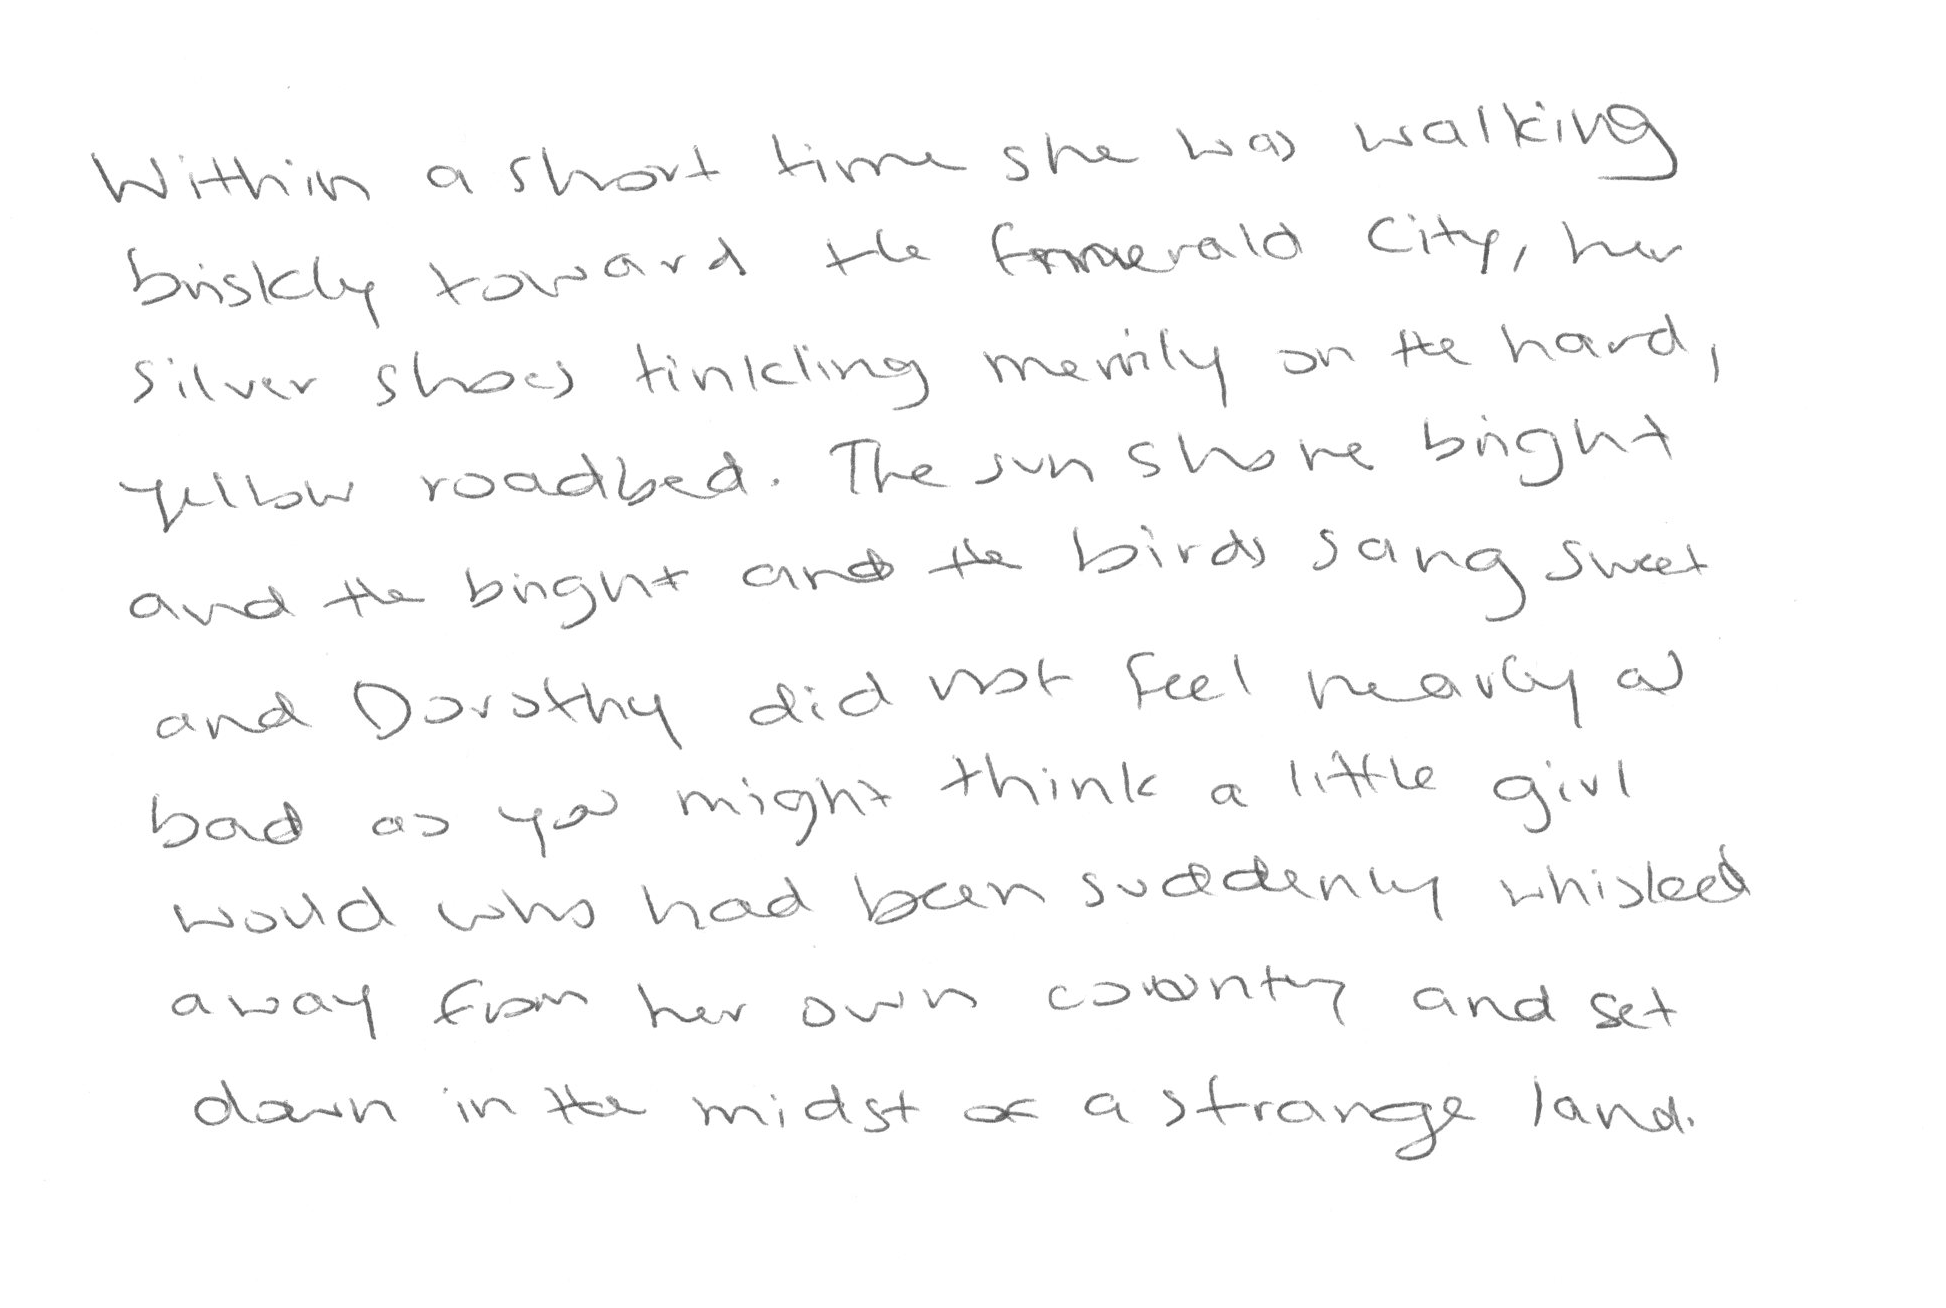 Within a short time she was walking
briskly toward the Emmerald City, her
silver shoes tinkling merrily on the hard,
yellow roadbed. The sun shone bright
and the bright and the birds sang sweet
and Dorothy did not feel nearly as
bad as you might think a little girl
would who had been suddenly whisked
away from her own country and set
down in the midst of a strange land.